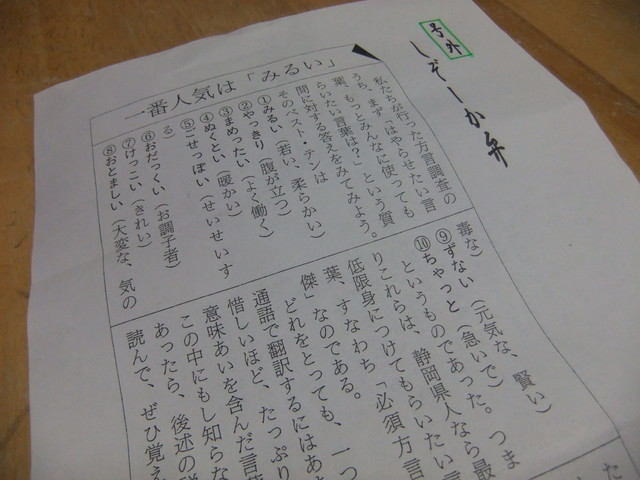 号外
しぞーか弁
一番人気は「みるい」
私たちが行った方言調査の
うち、まず「はやらせたい言
葉、もっとみんなに使っても
らいたい言葉は?」という質
問に対する答えをみてみよう。
そのベスト・テンは
①みるい(若い、柔らかい)
②やっきり(腹が立つ)
③まめったい(よく働く)
④ぬくとい(暖かい)
⑤ごせっぽい(せいせいす
る)
⑥おだっくい(お調子者)
⑦けっこい(きれい)
⑧おとましい(大変な、気の
毒な)
⑨ずない(元気な、賢い)
⑩ちゃっと(急いで)
というものであった。つま
りこれらは、静岡県人なら最
低限身につけてもらいたい言
葉、すなわち「必須方言
傑」なのである。
どれをとっても、一つ
通語で翻訳するにはあ
惜しいほど、たっぷり
意味あいを含んだ言葉
この中にもし知らな
あったら、後述の
読んで、ぜひ覚え
た